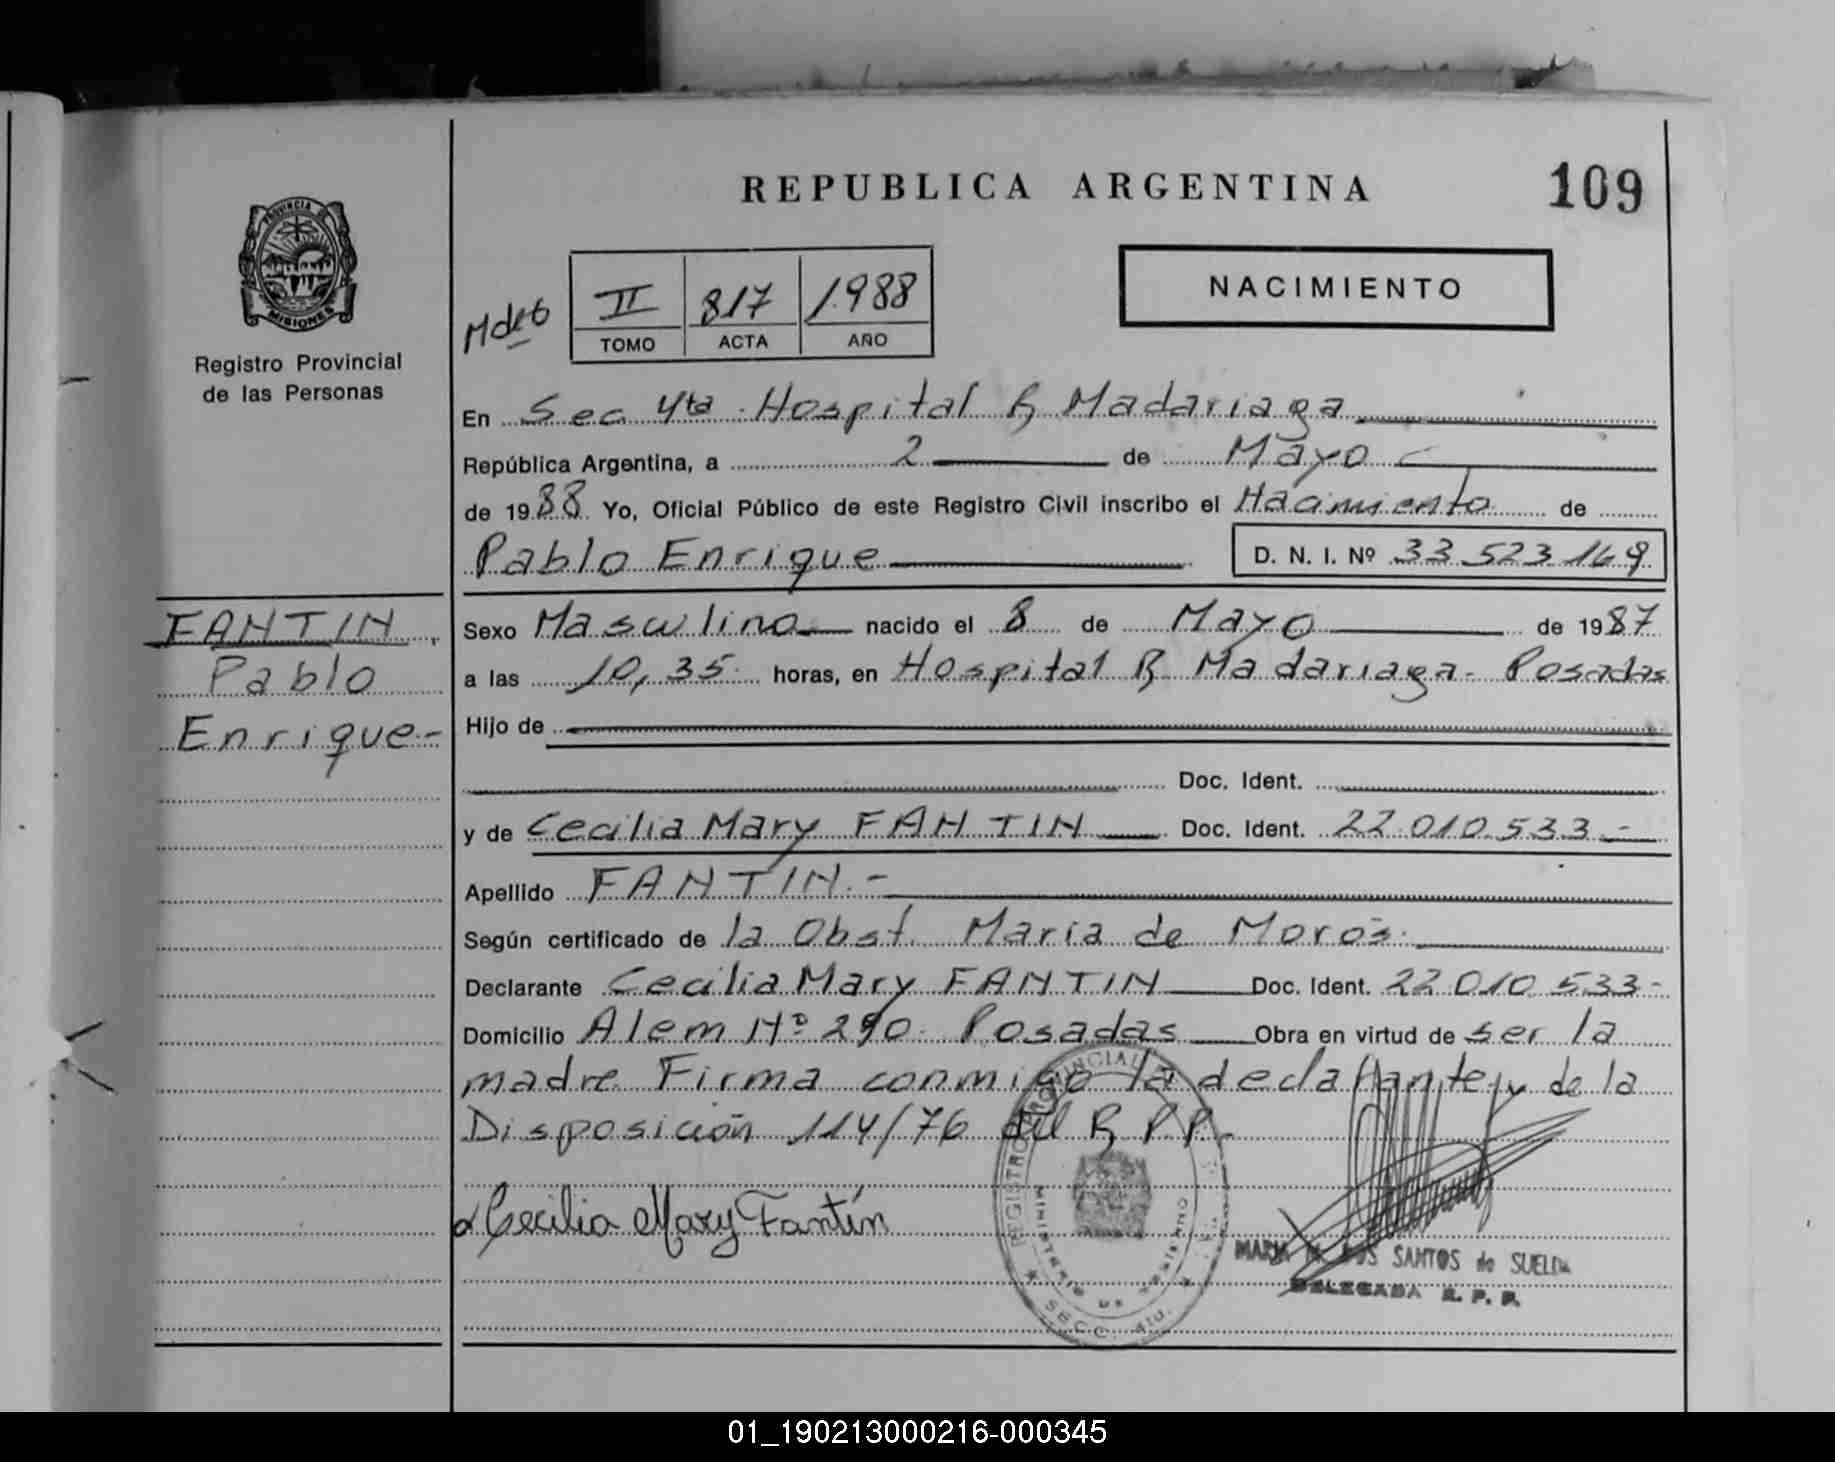 REPUBLICA ARGENTINA
109
PROVINCIA DE
MISIONES
Registro Provincial
de las Personas
II 817 1.988
TOMO ACTA AÑO
NACIMIENTO
En Sec 4ta. Hospital R Madariaga
República Argentina, a 2 de Mayo
de 1988 Yo, Oficial Público de este Registro Civil inscribo el Nacimiento de
Pablo Enrique D. N. I. Nº 33 523 169
FANTIN
Pablo
Enrique-
Sexo Masculino nacido el 8 de Mayo de 1987
a las 10,35 horas, en Hospital R Madariaga- Posadas
Hijo de
Doc. Ident.
y de Cecilia Mary FANTIN Doc. Ident. 22.010.533-
Apellido FANTIN.-
Según certificado de la Obst. Maria de Moros.
Declarante Cecilia Mary FANTIN Doc. Ident. 22 010 533-
Domicilio Alem Nº 290. Posadas Obra en virtud de ser la
madre Firma conmigo la declarante y de la
Disposición 114/76 del R P P.
Cecilia Mary Fantín
REGISTRO PROVINCIAL
MINISTERIO DE
SECC. 4ta.
MARIA M. DOS SANTOS de SUELDA
DELEGADA R. P. P.
01_190213000216-000345